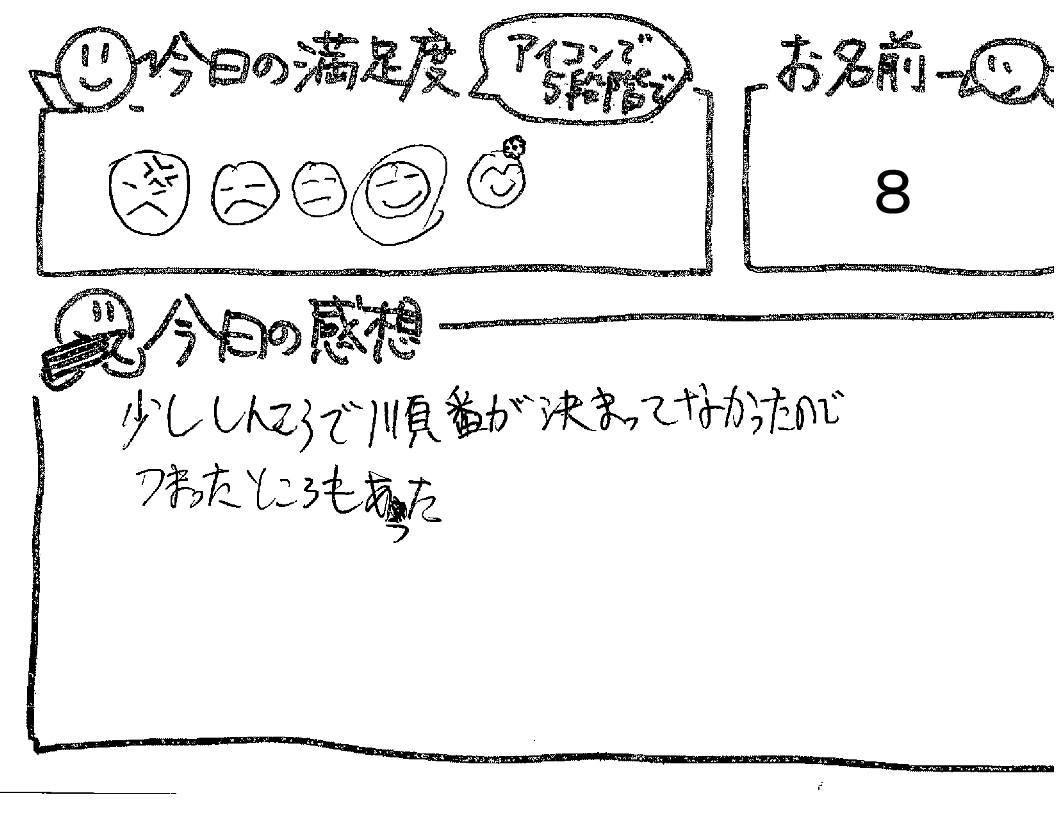 今日の満足度
アイコンで
5段階で
お名前
8
今日の感想
少ししんころで順番が決まってなかったので
つまったところもあった